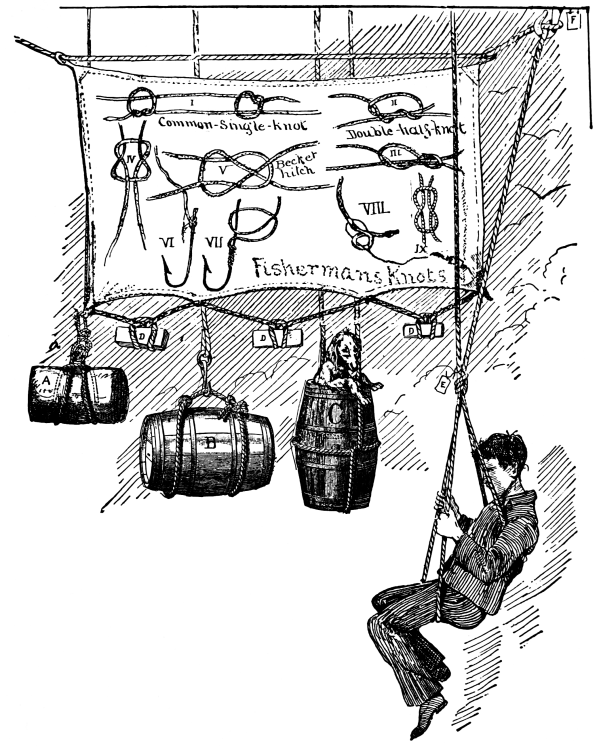 F
I
II
Common-Single-Knot
Double-half-knot
IV
V
Becket
hitch
III
VI
VII
VIII.
IX
Fishermans Knots
D
D
D
A
B
C
E